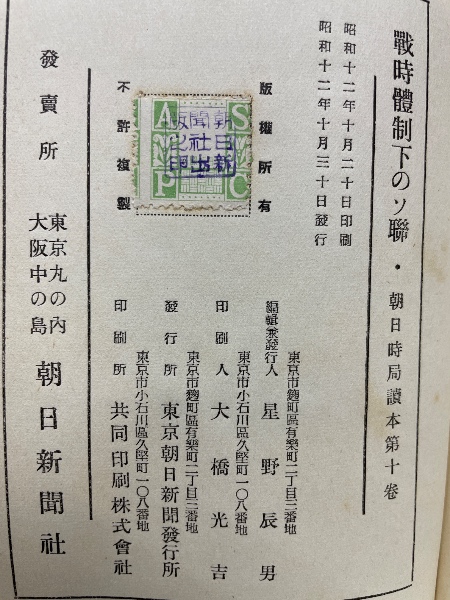 戰時體制下のソ聯・朝日時局讀本第十卷
昭和十二年十月二十日印刷
昭和十二年十月三十日發行
版權所有
不許複製
A S
P C
朝日新
聞社出
版之印
東京市麴町區有樂町二丁目三番地
編輯兼發行人 星野辰男
東京市小石川區久堅町一〇八番地
印刷人 大橋光吉
東京市麴町區有樂町二丁目三番地
發行所 東京朝日新聞發行所
東京市小石川區久堅町一〇八番地
印刷所 共同印刷株式會社
發賣所
東京丸の內
大阪中の島
朝日新聞社